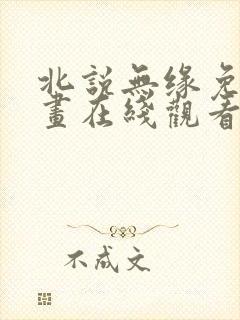 北説無缘免
畫在綫觀看
不成文